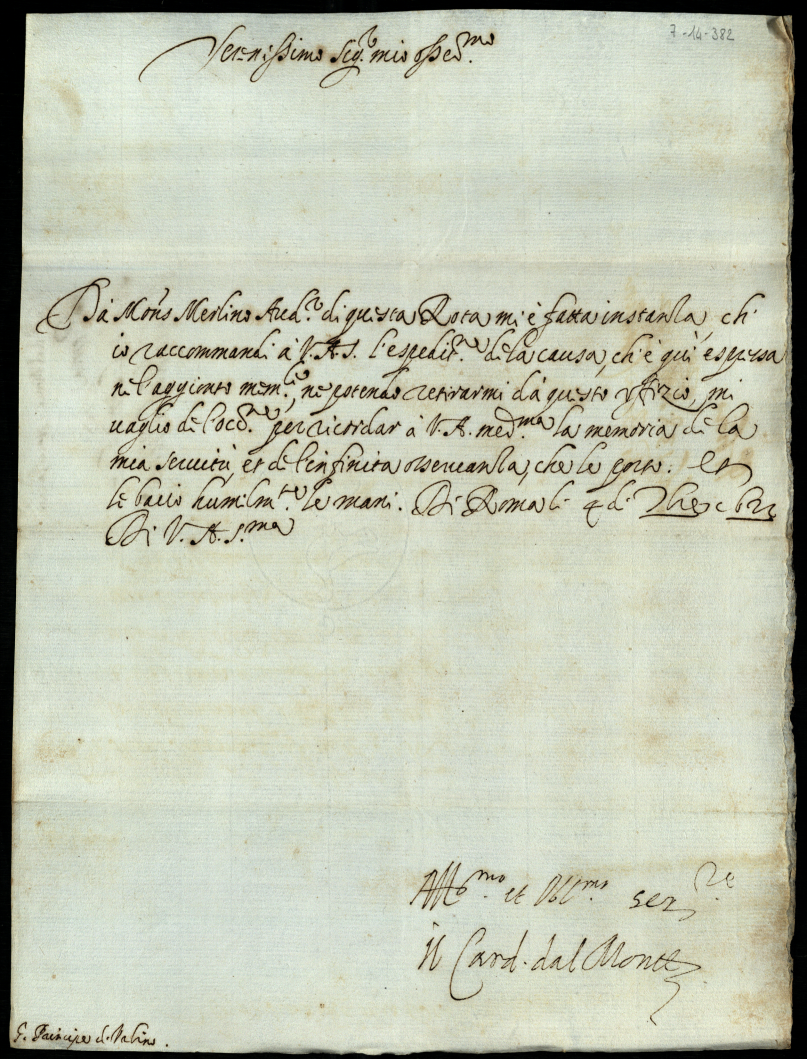 7-14-382
Serenissimo Sig.r mio osser.mo
Da Mons.r Merlino Aud.r di questa Rota mi è fatta instanza, ch'
io raccommandi à V.A.S. l'espedit.ne de la causa, ch'è qui espressa
ne l'aggionto mem.le, ne potendo retirarmi dà questo uffizio, mi
vaglio de l'occ.ne per ricordar à V.A. med.ma la memoria de la
mia servitù, et de l'infinita osservanza, che le porto: Et
le bacio humilm.te le mani. Di Roma li 4 di
Di V.A.S.ma
Aff.mo et Obl.mo ser.re
il Card. dal Monte
S. Principe d'Urbino.